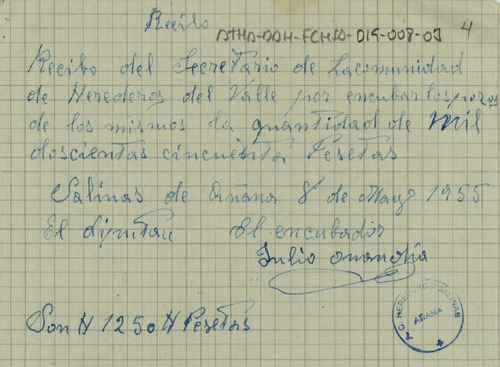 Recibo
ATHA-DAH-FCHSA-019-008-03
4
Recibo del Secretario de Lacomunidad
de Herederos del Valle por encubar los pozos
de los mismos la quantidad de mil
doscientas cincuenta Pesetas
Salinas de añana 8 de Mayo 1955
El El encubador
Julio
Son # 1250 # Pesetas
AÑANA